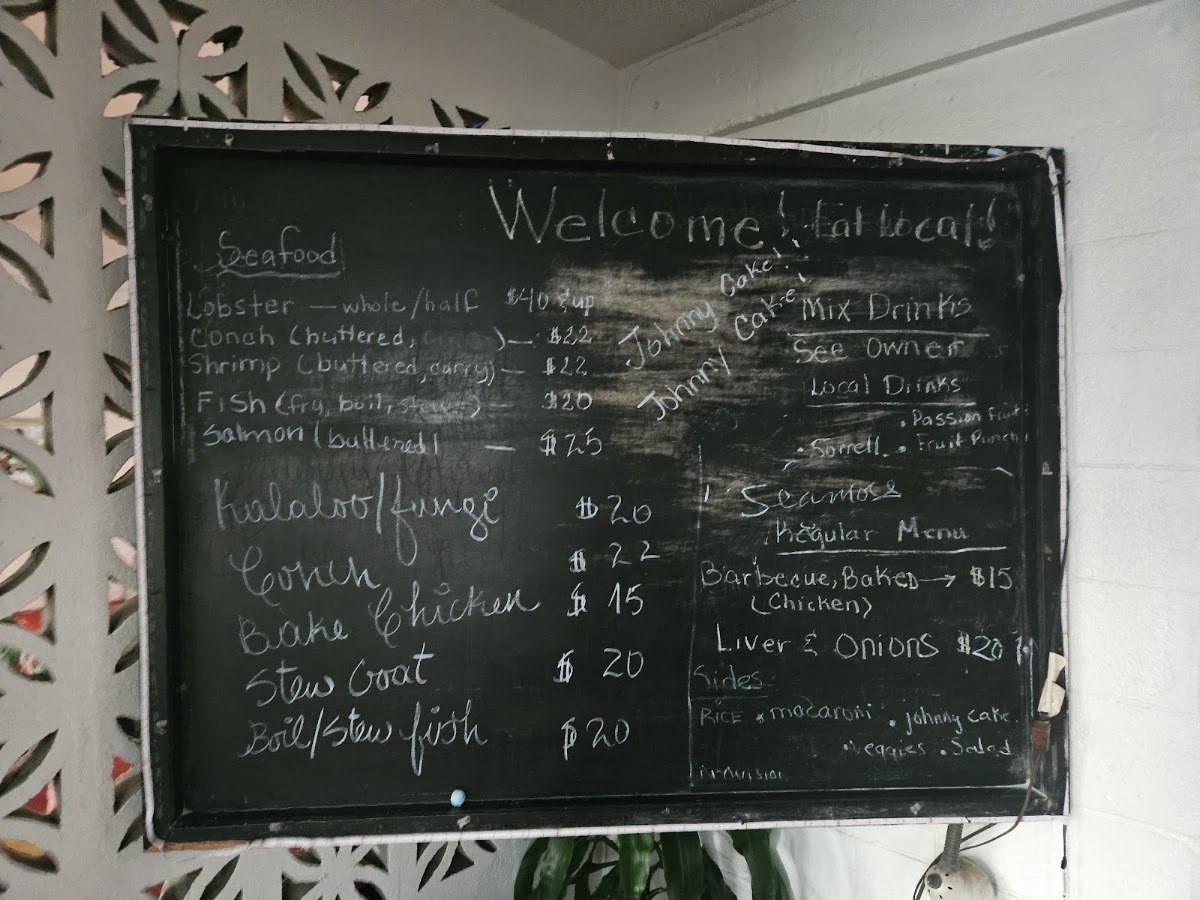 Welcome! Eat Local!
Seafood
Lobster — whole/half $40 & up
Conch (buttered, ) — $22
Shrimp (buttered, curry) — $22
Fish (fry, boil, stew) — $20
Salmon (buttered) — $25
Kalaloo/fungi $20
Conch $22
Bake Chicken $15
Stew Goat $20
Boil/Stew fish $20
Johnny Cake!!
Johnny Cake!
Mix Drinks
See Owner
Local Drinks
• Passion Fruit
• Sorrell • Fruit Punch
Regular Menu
Barbecue, Baked → $15
(Chicken)
Liver & Onions $20
Sides:
Rice • macaroni • johnny cake
• veggies • Salad
Provision